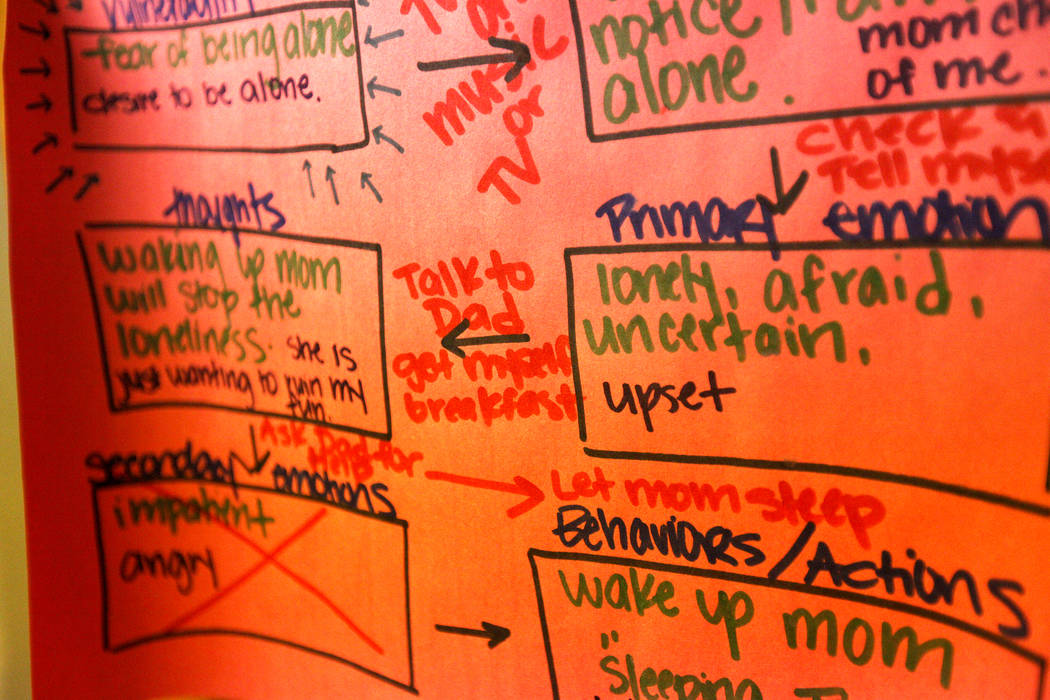 vulnerability
-fear of being alone
desire to be alone.
TV
or
music
TV or
notice
mom
alone.
of me.
check
Tell
thoughts
waking up mom
will stop the
loneliness. she is
just wanting to ruin my
fun.
Talk to
Dad
get myself
breakfast
Primary emotion
lonely, afraid,
uncertain,
upset
Ask Dad for
secondary
emotions
impatent
angry
Let mom sleep
Behaviors/Actions
wake up mom
"sleeping